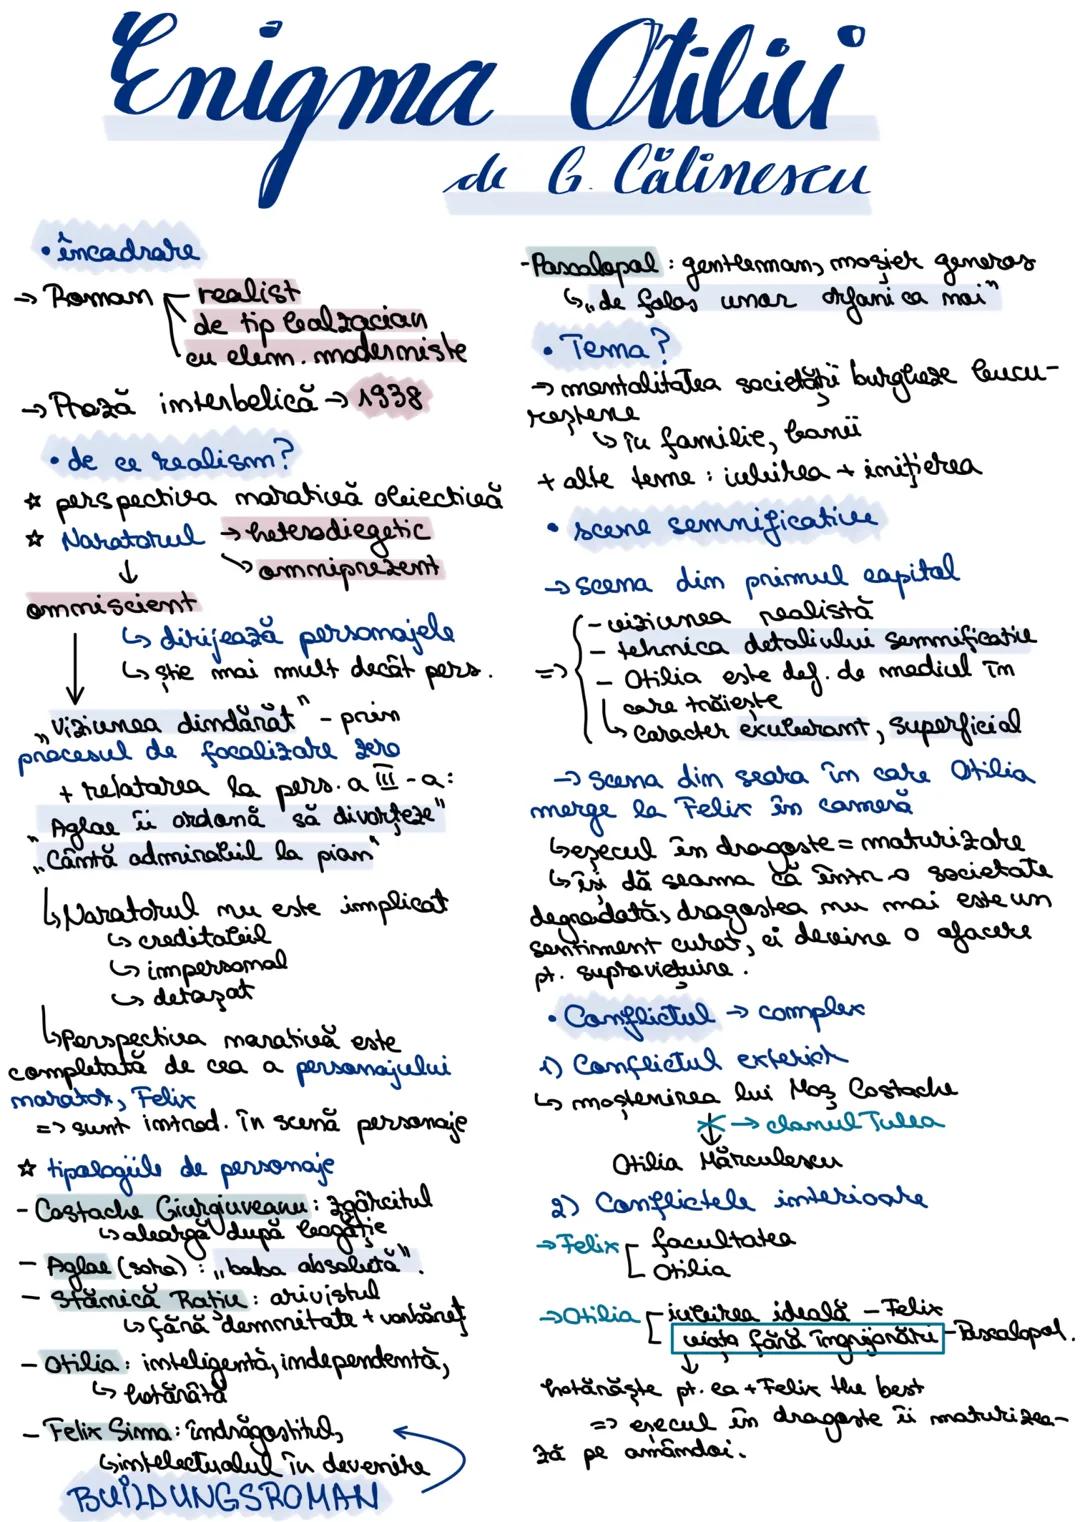 Enigma Otiliei
de G. Călinescu
• încadrare
→ Roman realist
de tip balzacian
cu elem. moderniste
→ Proză interbelică → 1938
• de ce realism?
☆ perspectiva narativă obiectivă
☆ Naratorul → heterodiegetic
↘ omniprezent
↓
omniscient
↳ dirijează personajele
↳ știe mai mult decât pers.
„viziunea dindărăt" - prin
procesul de focalizare zero
+ relatarea la pers. a III-a:
„Aglae îi ordonă să divorțeze"
„Cântă admirabil la pian"
↳ Naratorul nu este implicat
↳ creditabil
↳ impersonal
↳ detașat
↳ Perspectiva narativă este
completată de cea a personajului
narator, Felix
=> sunt introd. în scenă personaje
☆ tipologiile de personaje
- Costache Giurgiuveanu: zgârcitul
↳ aleargă după bogăție
- Aglae (sora): „baba absolută".
- Stănică Rațiu: arivistul
↳ fără demnitate + vorbăreț
- Otilia: inteligentă, independentă,
↳ hotărâtă
- Felix Sima: îndrăgostitul,
↳ intelectualul în devenire
BUILDUNGSROMAN
- Pascalopol: gentleman, moșier generos
↳ „de folos unor orfani ca noi"
• Tema?
→ mentalitatea societății burgheze bucu-
reștene
↳ în familie, banii
+ alte teme: iubirea + inițierea
• scene semnificative
→ scena din primul capitol
- viziunea realistă
- tehnica detaliului semnificativ
=> - Otilia este def. de mediul în
care trăiește
↳ caracter exuberant, superficial
→ scena din seara în care Otilia
merge la Felix în cameră
↳ eșecul în dragoste = maturizare
↳ își dă seama că într-o societate
degradată, dragostea nu mai este un
sentiment curat, ci devine o afacere
pt. supraviețuire.
• Conflictul → complex
1) Conflictul exterior
↳ moștenirea lui Moș Costache
→ clanul Tulea
Otilia Mărculescu
2) Conflictele interioare
→ Felix facultatea
Otilia
→ Otilia iubirea ideală - Felix
viața fără îngrijorări - Pascalopol.
↓
hotărăște pt. ea + Felix the best
=> eșecul în dragoste îi maturizea-
ză pe amândoi.